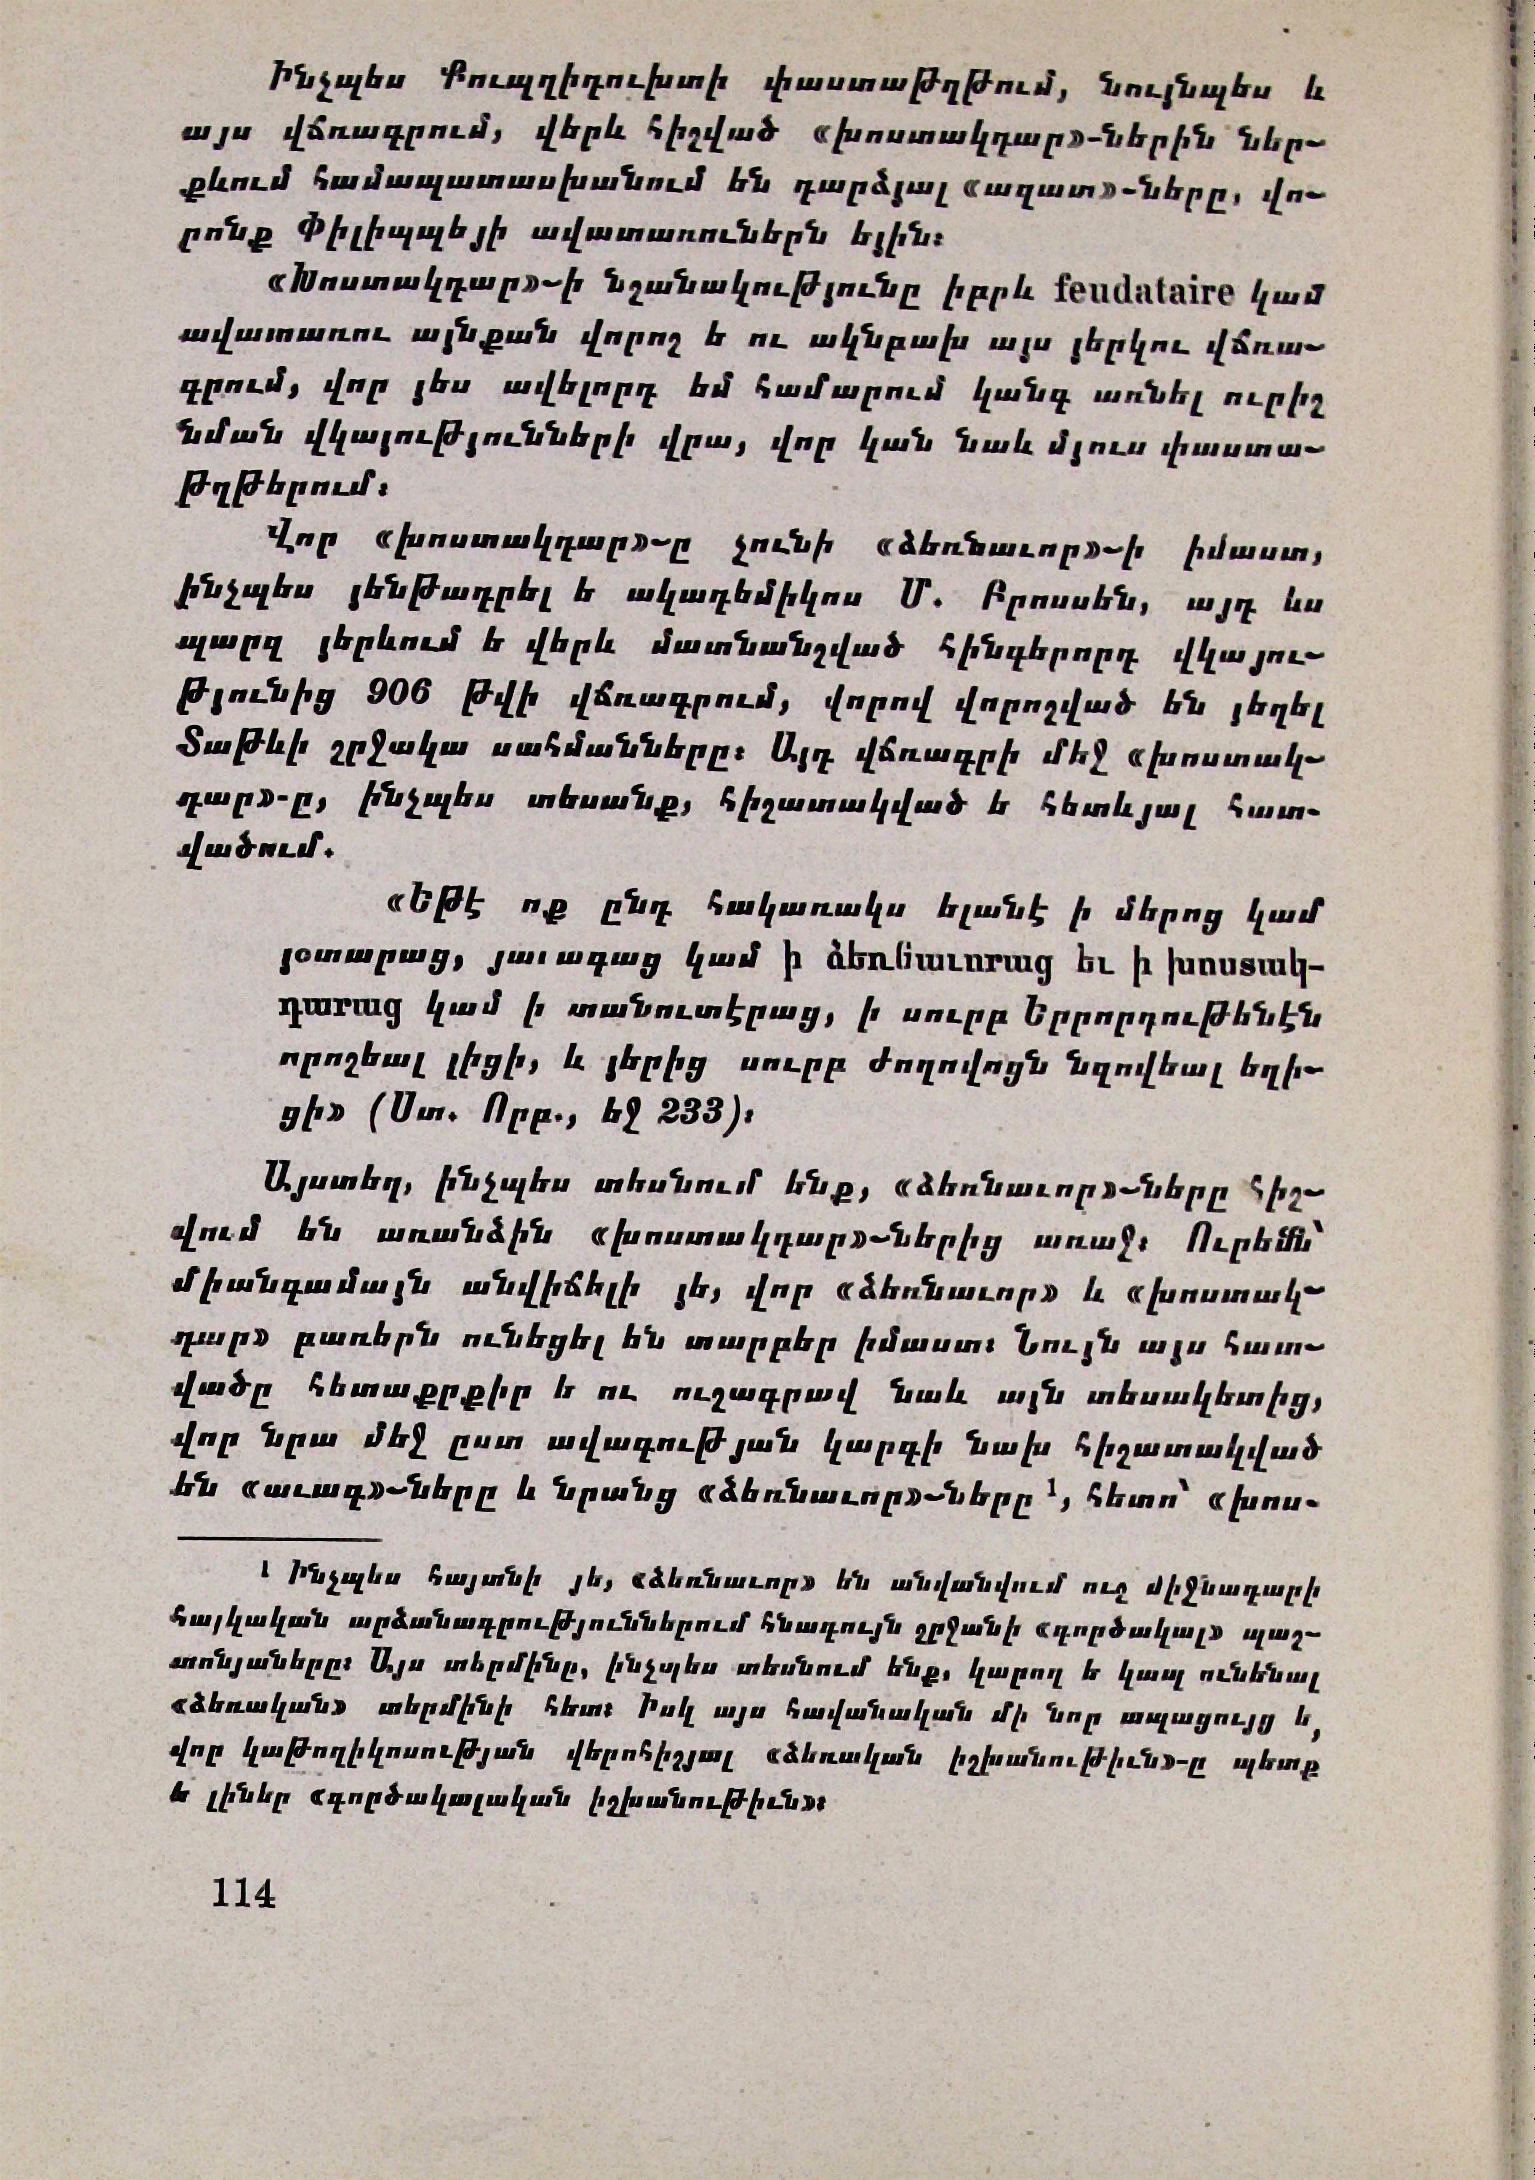 Ինչպես Քուպղիդուխտի փաստաթղթում, նույնպես և
այս վճռագրում, վերև հիշված «խոստակդար»-ներին ներ-
քևում համապատասխանում են դարձյալ «ազատ»-ները, վո-
րոնք Փիլիպպեյի ավատառուներն եյին։
«Խոստակդար»-ի նշանակությունը իբրև feudataire կամ
ավատառու այնքան վորոշ ե ու ակնբախ այս յերկու վճռա-
գրում, վոր յես ավելորդ եմ համարում կանգ առնել ուրիշ
նման վկայությունների վրա, վոր կան նաև մյուս փաստա-
թղթերում։
Վոր «խոստակդար»-ը չունի «ձեռնաւոր»-ի իմաստ,
ինչպես յենթադրել ե ակադեմիկոս Մ. Բրոսսեն, այդ ևս
պարզ յերևում ե վերև մատնանշված հինգերորդ վկայու-
թյունից 906 թվի վճռագրում, վորով վորոշված են յեղել
Տաթևի շրջակա սահմանները։ Այդ վճռագրի մեջ «խոստակ-
դար»-ը, ինչպես տեսանք, հիշատակված ե հետևյալ հատ-
վածում.
«Եթէ ոք ընդ հակառակս ելանէ ի մերոց կամ
յօտարաց, յաւագաց կամ ի ձեռնաւորաց եւ ի խոստակ-
դարաց կամ ի տանուտէրաց, ի սուրբ Երրորդութենէն
որոշեալ լիցի, և յերից սուրբ ժողովոցն նզովեալ եղի-
ցի» (Ստ. Որբ., եջ 233)։
Այստեղ, ինչպես տեսնում ենք, «ձեռնաւոր»-ները հիշ-
վում են առանձին «խոստակդար»-ներից առաջ։ Ուրեմն՝
միանգամայն անվիճելի յե, վոր «ձեռնաւոր» և «խոստակ-
դար» բառերն ունեցել են տարբեր իմաստ։ Նույն այս հատ-
վածը հետաքրքիր ե ու ուշագրավ նաև այն տեսակետից,
վոր նրա մեջ ըստ ավագության կարգի նախ հիշատակված
են «աւագ»-ները և նրանց «ձեռնաւոր»-ները ¹, հետո՝ «խոս-
¹ Ինչպես հայտնի յե, «ձեռնաւոր» են անվանվում ուշ միջնադարի
հայկական արձանագրություններում հնագույն շրջանի «գործակալ» պաշ-
տոնյաները։ Այս տերմինը, ինչպես տեսնում ենք, կարող ե կապ ունենալ
«ձեռական» տերմինի հետ։ Իսկ այս հավանական մի նոր ապացույց ե,
վոր կաթողիկոսության վերոհիշյալ «ձեռական իշխանութիւն»-ը պետք
ե լիներ «գործակալական իշխանութիւն»։
114